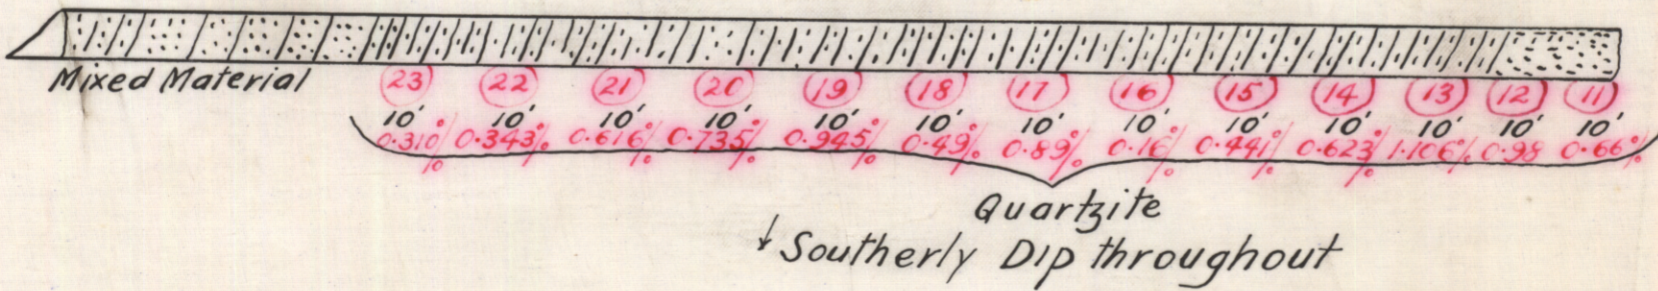 Mixed Material
23 22 21 20 19 18 17 16 15 14 13 12 11
10' 10' 10' 10' 10' 10' 10' 10' 10' 10' 10' 10' 10'
0.310% 0.343% 0.616% 0.735% 0.945% 0.49% 0.89% 0.16% 0.441% 0.623% 1.106% 0.98 0.66%
Quartzite
↓ Southerly Dip throughout